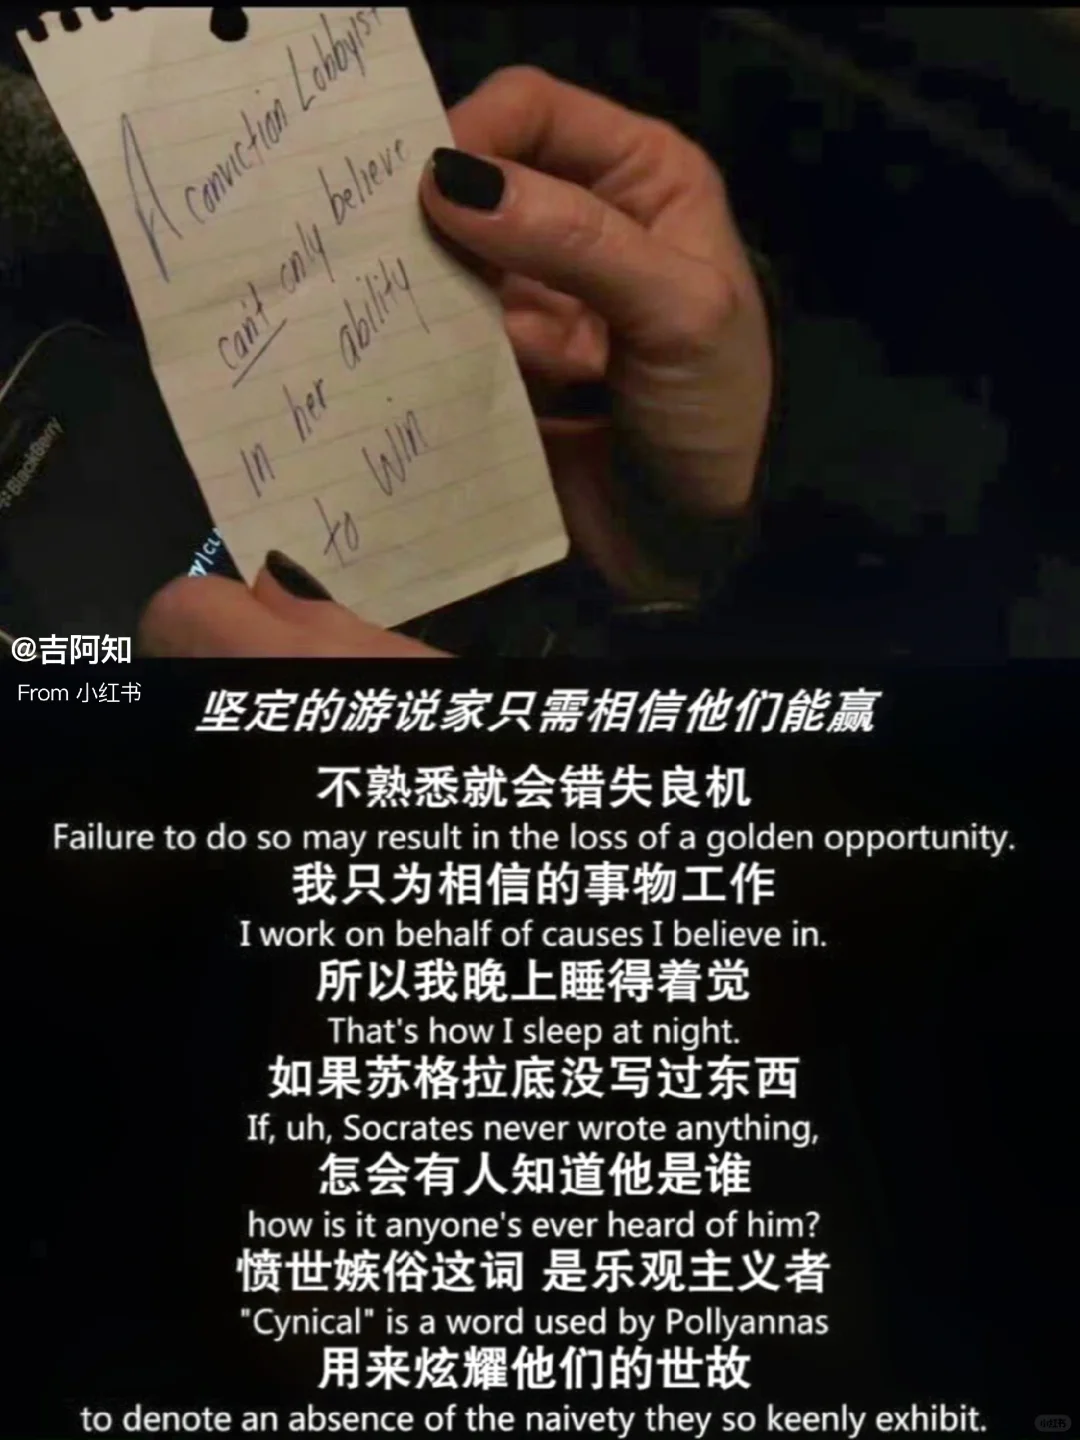 A conviction Lobbyist
can't only believe
in her ability
to win
BlackBerry
@吉阿知
From 小红书
坚定的游说家只需相信他们能赢
不熟悉就会错失良机
Failure to do so may result in the loss of a golden opportunity.
我只为相信的事物工作
I work on behalf of causes I believe in.
所以我晚上睡得着觉
That's how I sleep at night.
如果苏格拉底没写过东西
If, uh, Socrates never wrote anything,
怎会有人知道他是谁
how is it anyone's ever heard of him?
愤世嫉俗这词 是乐观主义者
"Cynical" is a word used by Pollyannas
用来炫耀他们的世故
to denote an absence of the naivety they so keenly exhibit.
小红书